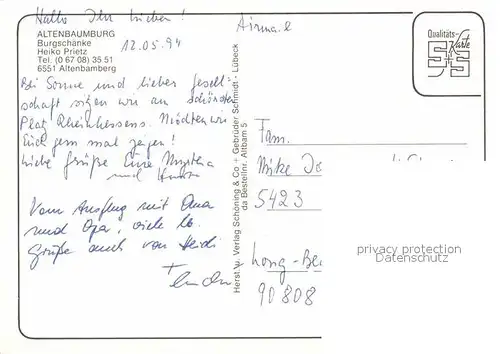 Hallo Ihr Lieben!
ALTENBAUMBURG
Burgschänke
Heiko Prietz
Tel. (0 67 08) 35 51
6551 Altenbamberg
12.05.94
Airmail
Qualitäts-
Karte
S+S
Bei Sonne und lieber Gesell-
schaft sitzen wir am schönsten
Platz Rheinhessens. Möchten wir
Euch gern mal zeigen!
Liebe Grüße Eure
und
Vom Ausflug mit Oma
und Opa, viele lb.
Grüße auch von Heidi
Herst. u. Verlag Schöning & Co + Gebrüder Schmidt - Lübeck
da Bestellnr. Altbam 5
Fam.
Mike
5423
Long-Be
90808
privacy protection
Datenschutz